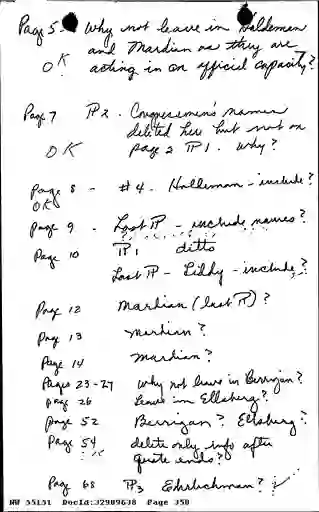 Page 5 - Why not leave in Haldeman
and Mardian as they are
OK acting in an official capacity?
Page 7 ¶ 2. Congressmen's names
deleted here but not on
OK page 2 ¶ 1. Why?
Page 8 - #4. Halleman - include?
OK
Page 9 - Last ¶ - include names?
Page 10 ¶ 1 ditto
Last ¶ - Liddy - include?
Page 12 Mardian (last ¶)?
Page 13 Mardian?
Page 14 Mardian?
Pages 23-27 Why not leave in Berrigan?
Page 26 Leave in Ellsberg?
Page 52 Berrigan? Ellsberg?
Page 54 delete only info after
OK quote ends?
Page 68 ¶3 Ehrlichman?
NW 55151 DocId:32989638 Page 350